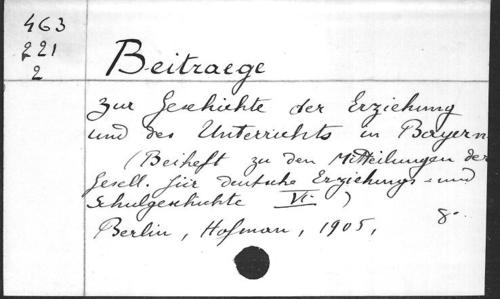 463
221
2
Beitraege
zur Geschichte der Erziehung
und des Unterrichts in Bayern.
(Beiheft zu den Mitteilungen der
Gesell. für deutsche Erziehungs- und
Schulgeschichte VI.)
Berlin, Hofman, 1905, 8º.